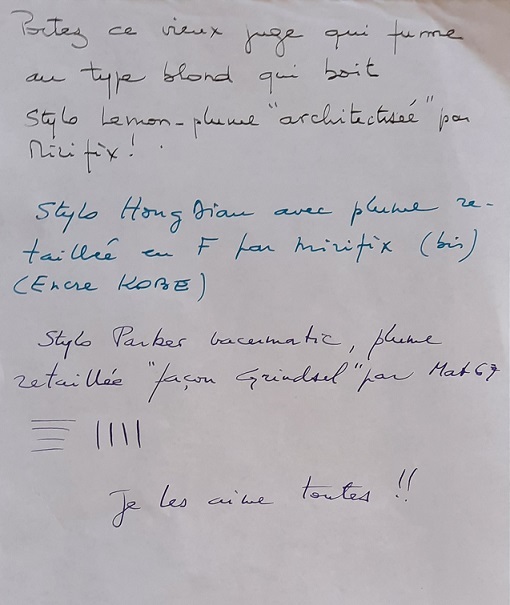 Portez ce vieux juge qui fume
au type blond qui boit
Stylo Lemon-plume "architectisée" par
Mirifix !
Stylo HongDian avec plume re-
taillée en F par mirifix (bis)
(Encre KOBE)
Stylo Parker vacumatic, plume
retaillée "façon Grindsel" par Mat67
Je les aime toutes !!